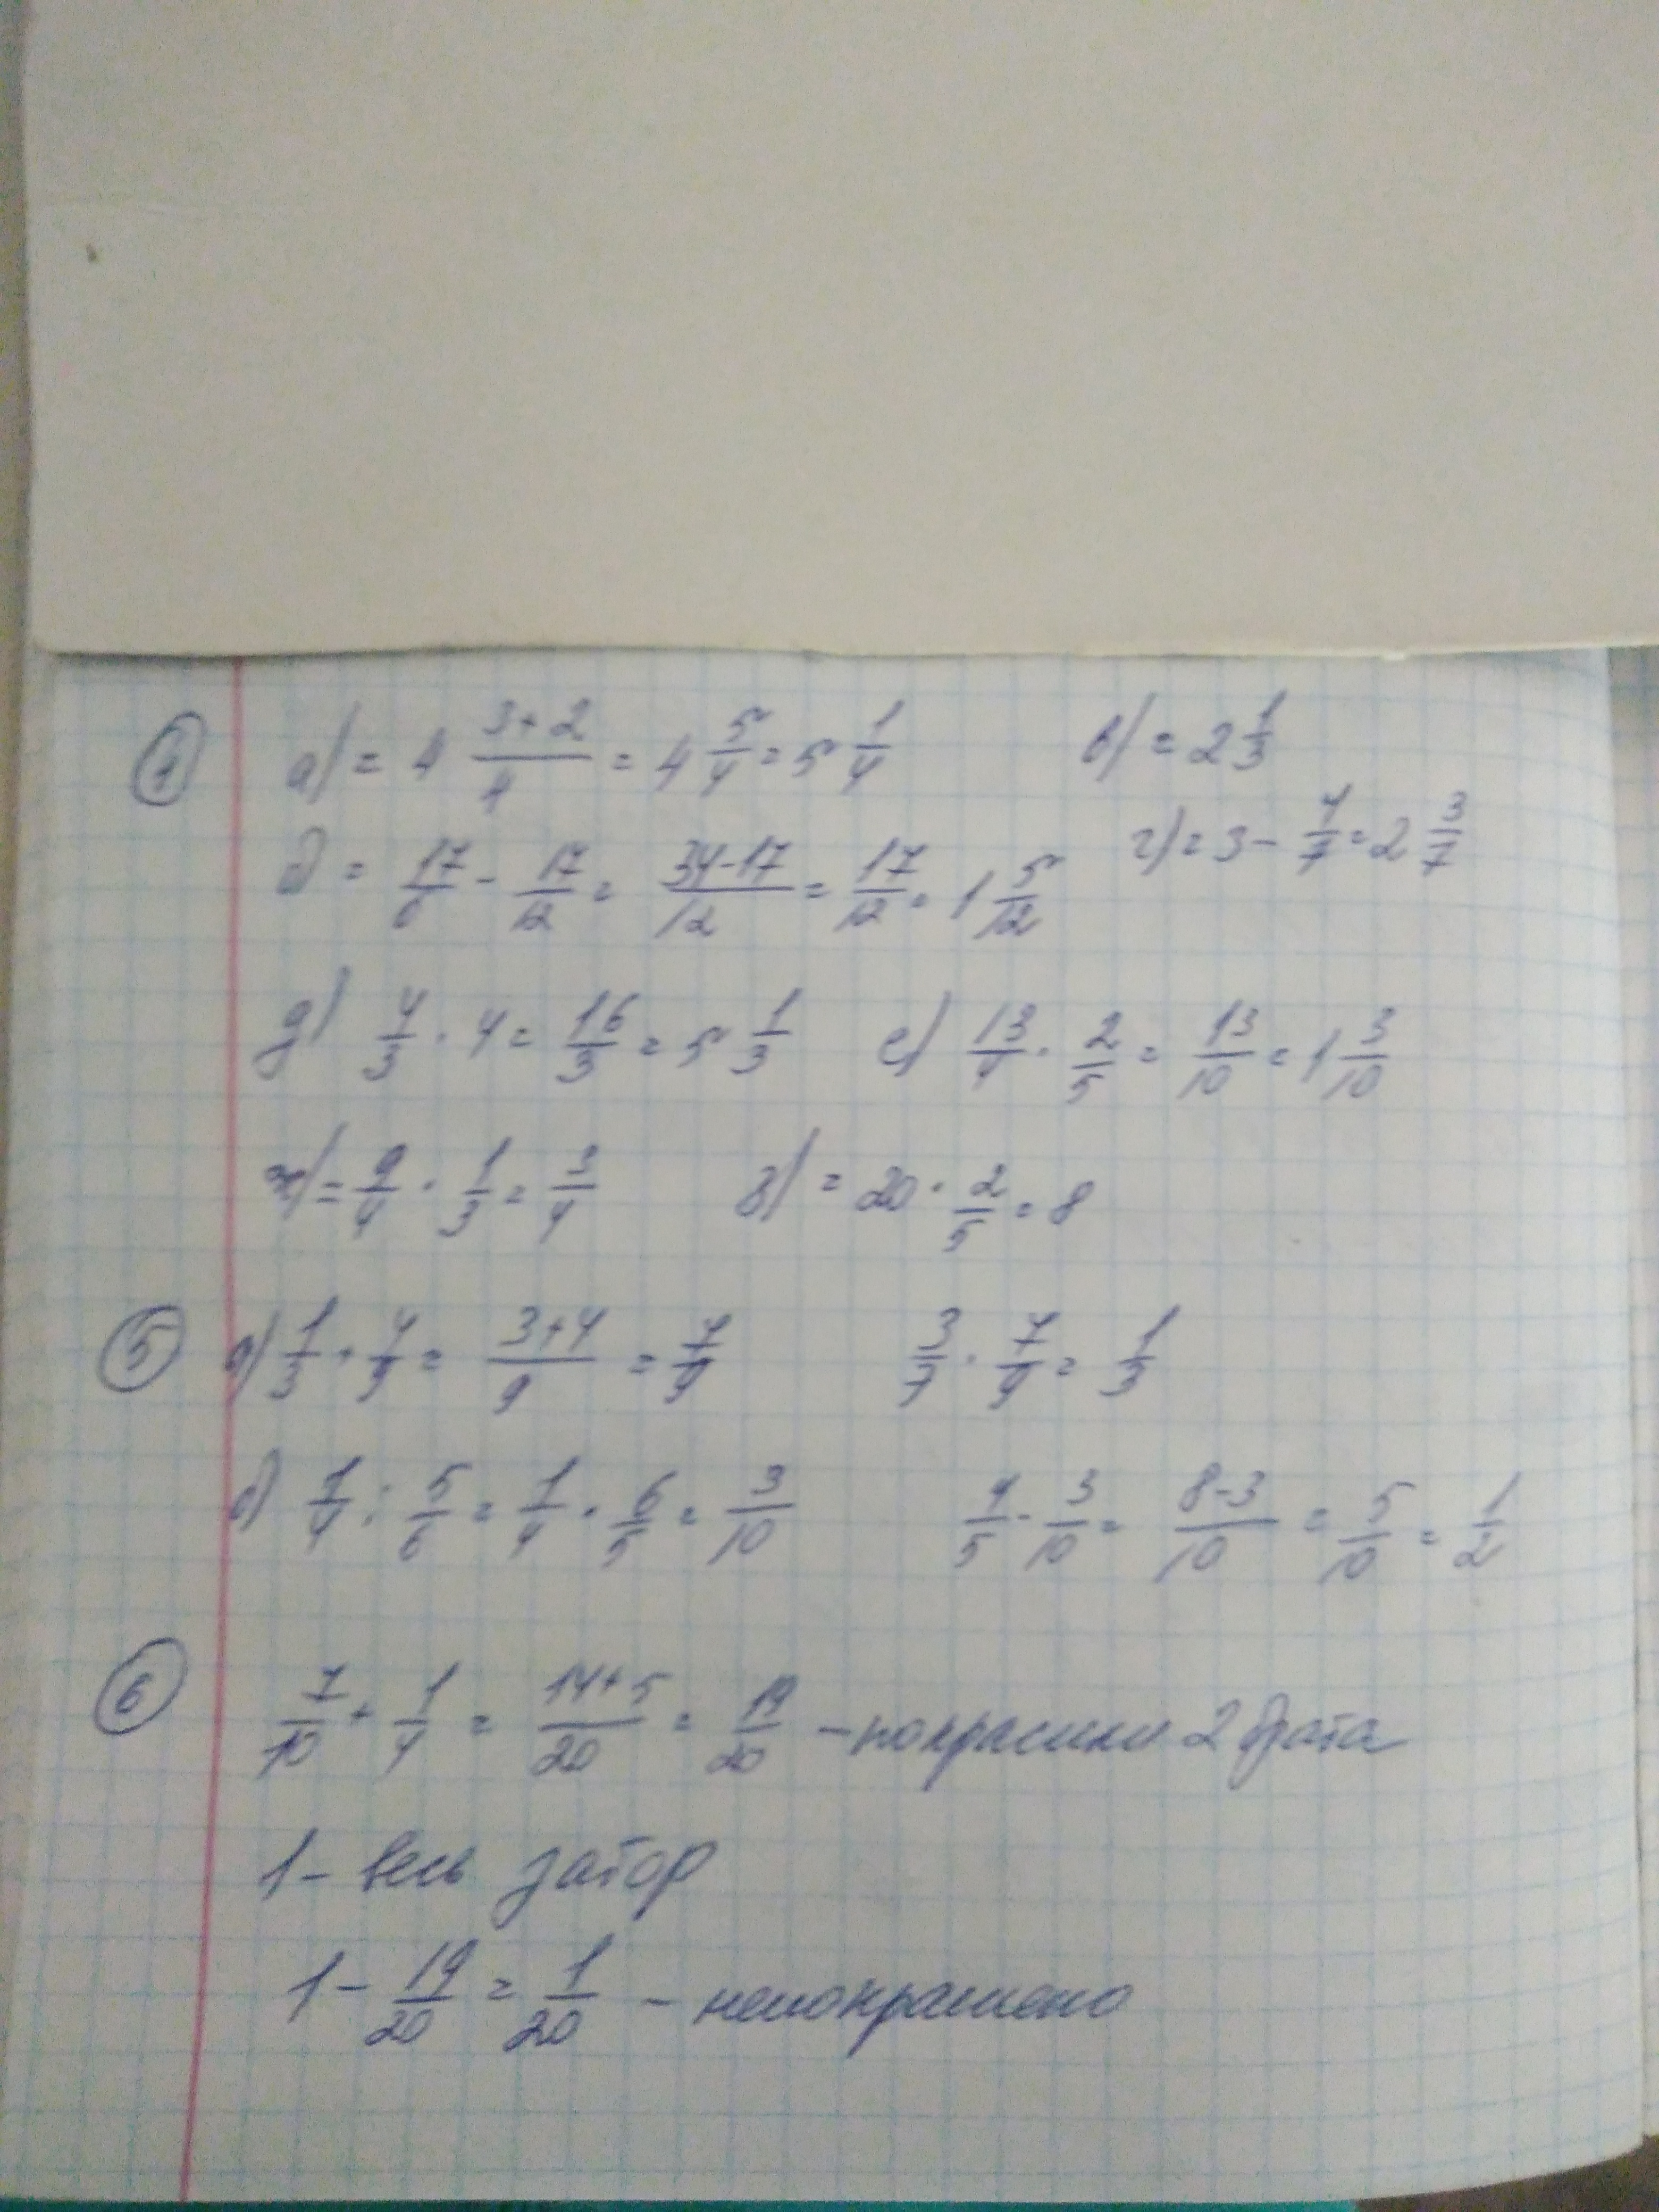 ① а) = 4 (3+2)/4 = 4 5/4 = 5 1/4 в) = 2 1/3
б = 17/6 - 17/12 = (34-17)/12 = 17/12 = 1 5/12 г) = 3 - 4/7 = 2 3/7
д) 4/3 · 4 = 16/3 = 5 1/3 е) 13/4 · 2/5 = 13/10 = 1 3/10
ж) = 9/4 · 1/3 = 3/4 з) = 20 · 2/5 = 8
⑤ а) 1/3 + 4/9 = (3+4)/9 = 7/9 3/7 · 7/9 = 1/3
б) 1/4 : 5/6 = 1/4 · 6/5 = 3/10 4/5 - 3/10 = (8-3)/10 = 5/10 = 1/2
⑥ 7/10 + 1/4 = (14+5)/20 = 19/20 - покрасили 2 брата
1 - весь забор
1 - 19/20 = 1/20 - непокрашено